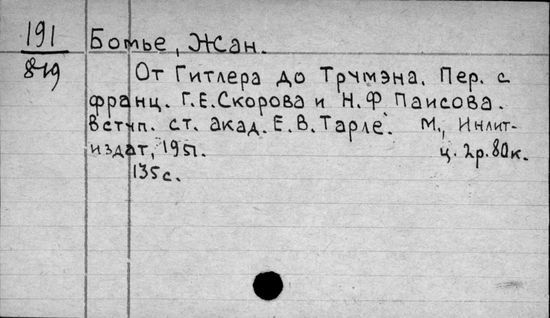 191
819
Бомье, Жан.
От Гитлера до Трумэна. Пер. с
франц. Г.Е.Скорова и Н.Ф Паисова.
Вступ. ст. акад. Е.В.Тарле. М., Инлит-
издат, 1951. ц. 2р.80к.
135с.